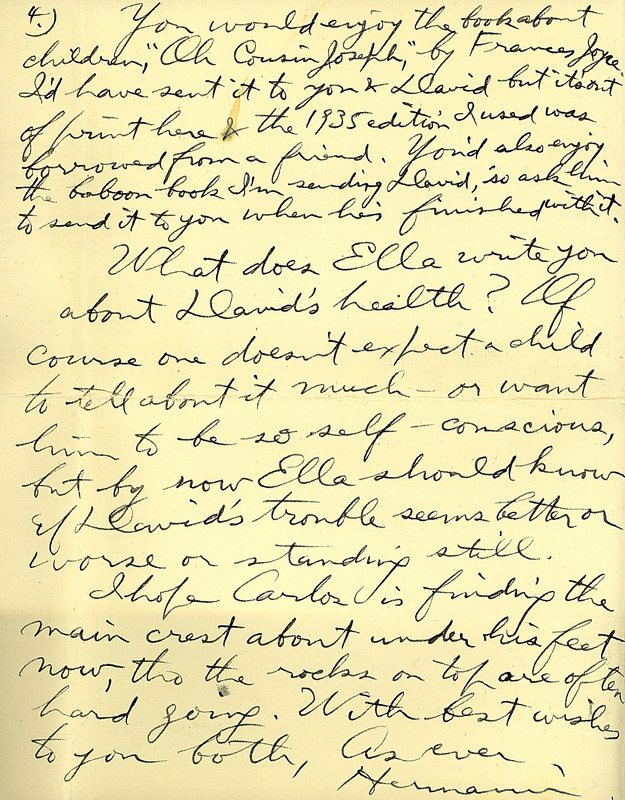 4.) You would enjoy the book about
children, "Oh Cousin Joseph," by Frances Joyce.
I'd have sent it to you & David but it's out
of print here & the 1935 edition I used was
borrowed from a friend. You'd also enjoy
the baboon book I'm sending David, so ask him
to send it to you when he's finished with it.
What does Ella write you
about David's health? Of
course one doesn't expect a child
to tell about it much - or want
him to be so self-conscious,
but by now Ella should know
if David's trouble seems better or
worse or standing still.
I hope Carlos is finding the
main crest about under his feet
now, tho the rocks on top are often
hard going. With best wishes
to you both, As ever,
Hermann